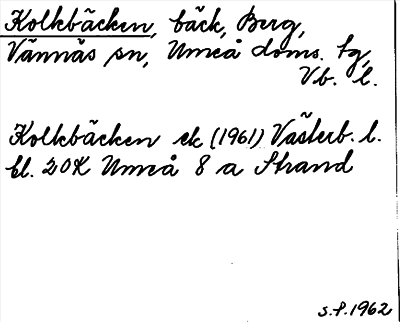 Kolkbäcken, bäck, Berg,
Vännäs sn, Umeå doms. tg,
Vb. l.
Kolkbäcken ek (1961) Västerb. l.
bl. 20K Umeå 8 a Strand
s.f. 1962